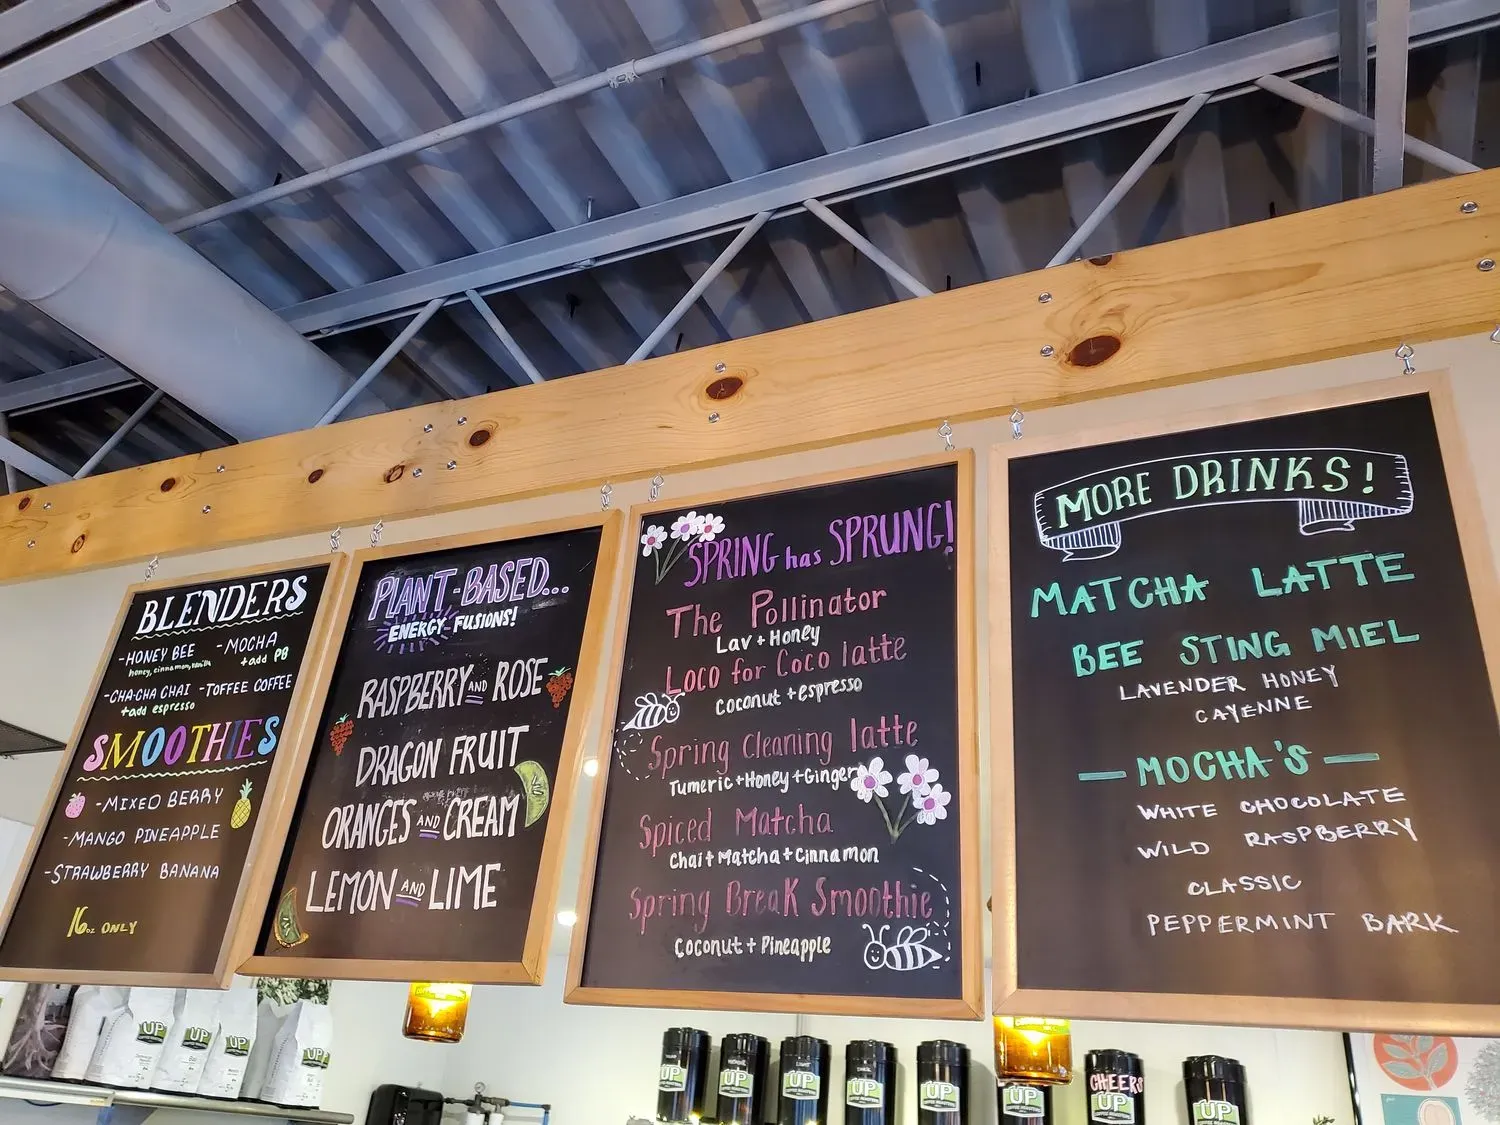 BLENDERS
-HONEY BEE
honey, cinnamon, vanilla
-MOCHA
+add PB
-CHA-CHA CHAI
+add espresso
-TOFFEE COFFEE
SMOOTHIES
-MIXED BERRY
-MANGO PINEAPPLE
-STRAWBERRY BANANA
16oz ONLY
PLANT-BASED...
ENERGY FUSIONS!
RASPBERRY AND ROSE
DRAGON FRUIT
ORANGES AND CREAM
LEMON AND LIME
SPRING has SPRUNG!
The Pollinator
Lav + Honey
Loco for Coco latte
Coconut + espresso
Spring Cleaning latte
Tumeric + Honey + Ginger
Spiced Matcha
Chai + Matcha + Cinnamon
Spring Break Smoothie
Coconut + Pineapple
MORE DRINKS!
MATCHA LATTE
BEE STING MIEL
LAVENDER HONEY
CAYENNE
— MOCHA'S —
WHITE CHOCOLATE
WILD RASPBERRY
CLASSIC
PEPPERMINT BARK
UP
UP
UP
UP
UP
UP
UP
UP
UP
UP
CHEERS
UP